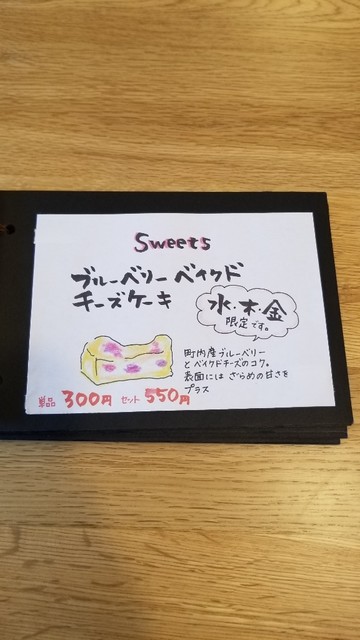 Sweets
ブルーベリーベイクド
チーズケーキ
水・木・金
限定です。
町内産ブルーベリー
とベイクドチーズのコク。
表面には ざらめの甘さを
プラス
単品 300円 セット 550円